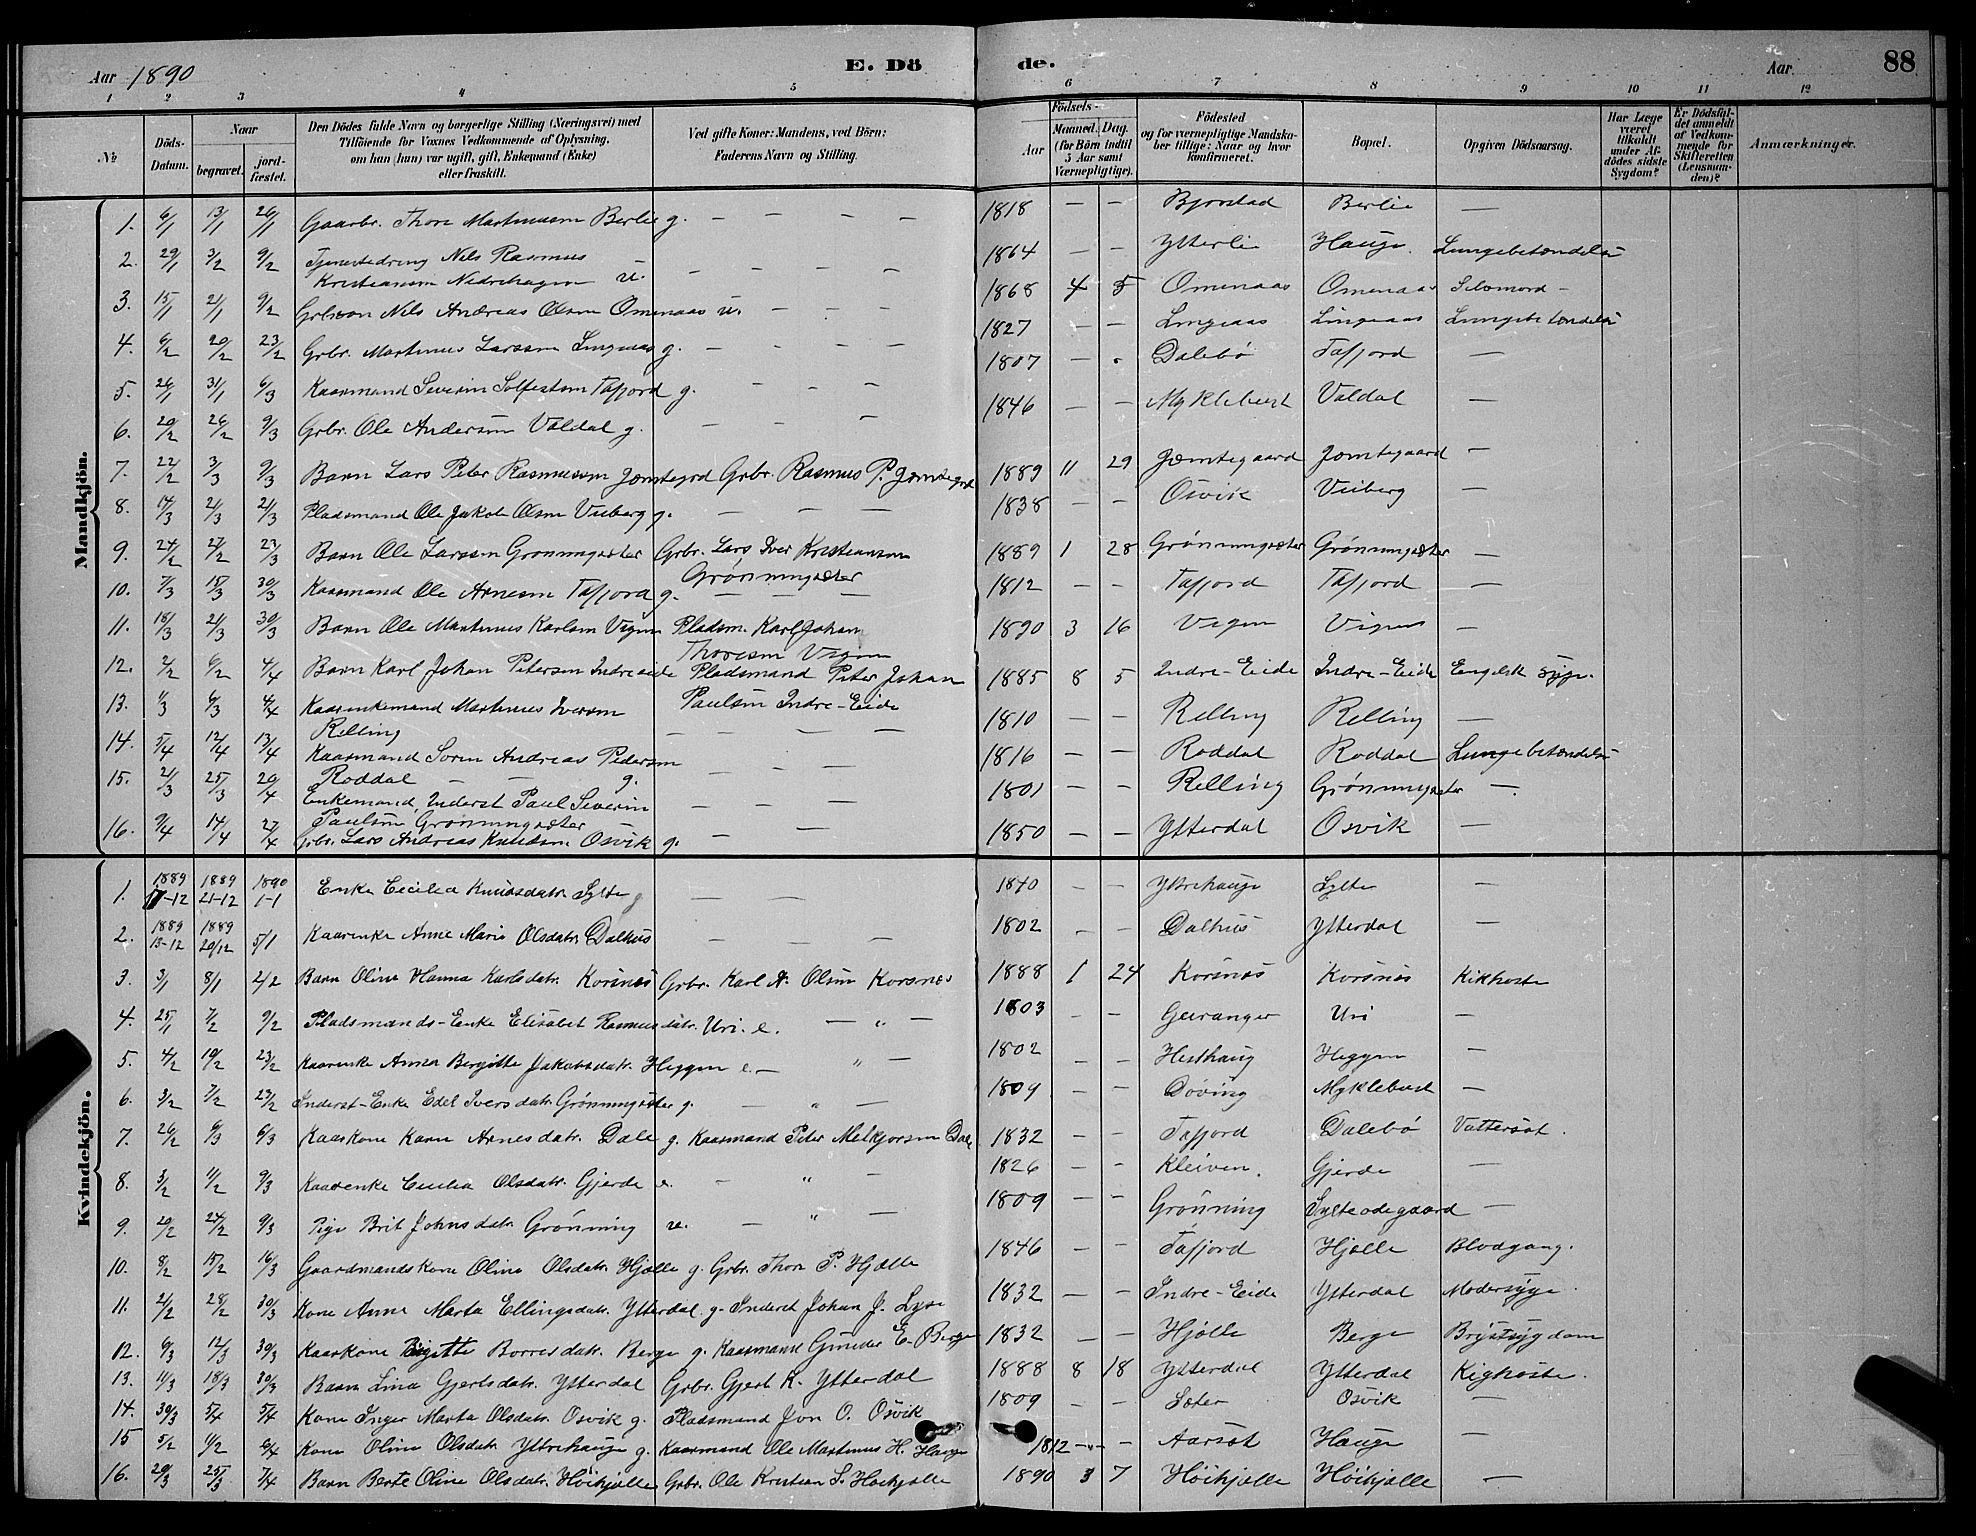 Aar 1890 E. Dö de. Aar 88
1 2 3 4 5 6 7 8 9 10 11 12
№ Döds-Datum. Naar begravet. jord-fæstet. Den Dödes fulde Navn og borgerlige Stilling (Næringsvei) med Tilföiende for Voxnes Vedkommende af Oplysning, om han (hun) var ugift, gift, Enkemand (Enke) eller fraskilt. Ved gifte Koner: Mandens, ved Börn: Faderens Navn og Stilling. Födsels- Aar Maaned. Dag. (for Börn indtil 5 Aar samt Værnepligtige). Födested og for værnepligtige Mandska-ber tillige: Naar og hvor konfirmeret. Bopæl. Opgiven Dödsaarsag. Har Læge været tilkaldt under Af-dödes sidste Sygdom? Er Dödsfal-det anmeldt af Vedkom-mende for Skifteretten (Lensman-den)? Anmærkninger.
Mandkjön.
1. 6/1 13/1 26/1 Gaarbr. Thore Martinusen Berlie g. — — — — 1818 — — Bjorstad Berlie —
2. 29/1 3/2 9/2 Tjenestedreng Nils Rasmus Kristiansen Nedrehagen u. — — — — 1864 — — Ytterlie Hauge. Lungebetændelse
3. 15/1 21/1 9/2 Grbrsøn Nils Andreas Olsen Omenaas u. — — — 1868 4 5 Omenaas Omenaas Selvmord —
4. 6/2 20/2 23/2 Grbr. Martinus Larssen Lingeaas g. — — — — 1827 — — Lingeaas Lingeaas Lungebetændelse
5. 26/1 31/1 6/3 Kaarmand Severin Solfestsen Tafjord g. — — — 1807 — . Dalebö Tafjord —
6. 20/2 26/2 9/3 Grbr. Ole Andersen Valdal g. — — — 1846 — — Myklebust Valdal —
7. 22/2 3/3 9/3 Barn Lars Peter Rasmussen Jemtegrd Grbr. Rasmus P. Jemtegrd 1889 11 29 Jemtegaard Jemtegaard —
8. 14/3 21/3 21/3 Pladsmand Ole Jakob Olsen Viiberg g. — — — 1838 — — Osvik Viiberg —
9. 24/2 27/2 23/3 Barn Ole Larssen Grønningsæter Grbr. Lars Iver Kristiansen Grønningsæter 1889 1 28 Grønningsæter Grønningsæter —
10. 7/3 15/3 30/3 Kaarmand Ole Arnesen Tafjord g. — — — 1812 — — Tafjord Tafjord —
11. 18/3 21/3 30/3 Barn Ole Martinus Karlsen Vigen Pladsm. Karl Johan Thoresen Vigen 1890 3 16 Vigen Vigen —
12. 2/2 6/2 4/4 Barn Karl Johan Petersen Indreeide Pladsmand Peter Johan Paulsen Indre-Eide 1885 8 5 Indre-Eide Indre-Eide Engelsk syge.
13. 1/3 6/3 4/4 Kaarenkemand Martinus Iversen Relling — — — — 1810 — — Relling Relling —
14. 5/4 12/4 13/4 Kaarmand Soren Andreas Pedersen Roddal g. — — — 1816 — — Roddal Roddal Lungebetændelse
15. 21/3 25/3 20/4 Enkemand, Inderst Paul Severin Paulsen Grønningsæter — — — 1801 — — Relling Grønningsæter —
16. 9/4 14/4 27/4 Grbr. Lars Andreas Knudsen Osvik g. — — 1850 — — Ytterdal Osvik —
Kvindekjön.
1. 1889 17-12 1889 21-12 1890 1-1 Enke Cecilia Knudsdatr. Sylte g — — 1840 — — Yttrehauge Sylte —
2. 1889 13-12 1889 20/12 5/1 Kaarenke Anne Marie Olsdatr. Dalhus — — — 1802 — — Dalhus Ytterdal —
3. 3/1 8/1 2/2 Barn Oline Hanna Karlsdatr. Korsnæs Grbr. Karl A. Olsen Korsnæs 1888 1 24 Korsnæs Korsnæs Kikhoste
4. 25/1 7/2 9/2 Pladsmands-Enke Elisabet Rasmusdatr. Uri. e. — " — 1803 — — Geiranger Uri —
5. 4/2 19/2 23/2 Kaarenke Anna Bergitte Jakobsdatr. Heggen e. — " — 1802 — — Hesthaug Heggen —
6. 3/2 7/2 23/2 Inderst-Enke Edel Iversdatr. Grønningsæter g. — " — 1809 — — Döving Myklebust —
7. 26/2 6/3 6/3 Kaarkone Karn Arnesdatr. Dale g. Kaarmand Peter Melkjorsen Dale 1832 — — Tafjord Dalebö Vattersot.
8. 3/2 11/2 9/3 Kaarenke Cecilia Olsdatr. Gjerde e. — " — 1826 — — Kleiven. Gjerde —
9. 20/2 24/2 9/3 Pige Brit Johnsdatr. Grønning u. — " — 1809 — — Grønning Sylteødegaard —
10. 8/2 15/2 16/3 Gaardmandskone Oline Olsdatr. Hjælle g. Grbr. Thore P. Hjælle 1846 — — Tafjord Hjelle Blodgang.
11. 21/2 28/2 30/3 Kone Anne Marta Ellingsdatr. Ytterdal. g. Inderst Johan J. Lyse 1832 — — Indre-Eide Ytterdal Modersyge.
12. 6/3 12/3 30/3 Kaarkone Birgitte Borresdatr. Berge g. Kaarmand Gunder E. Berge 1832 — — Hjelle Berge Brystsygdom
13. 11/3 18/3 30/3 Barn Lina Gjertsdatr. Ytterdal Grbr. Gjert K. Ytterdal 1888 8 18 Ytterdal Ytterdal Kighoste.
14. 30/3 5/4 5/4 Kone Inger Marta Olsdatr. Osvik g. Pladsmand Jon O. Osvik 1809 — — Sæter Osvik —
15 5/2 11/2 6/4 Kone Oline Olsdatr. Yttrehauge g. Kaarmand Ole Martinus H. Hauge 1812 — — Aarset Hauge —
16. 20/3 25/3 7/4 Barn Berte Oline Olsdatr. Höikjelle Grbr. Ole Kristian S. Hoikjelle 1890 3 7 Höikjelle Höikjelle —